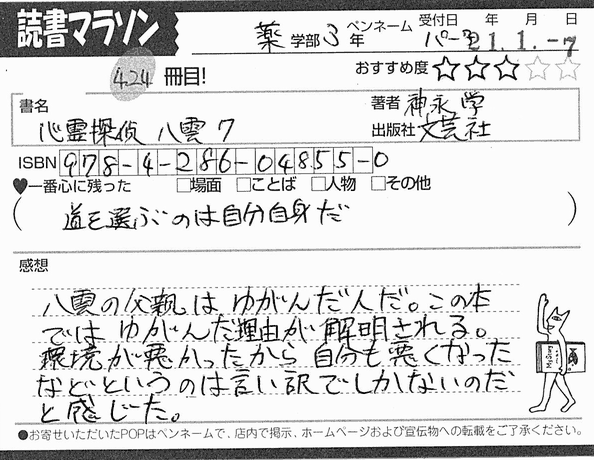 読書マラソン
薬 学部 3 年 ペンネーム パーマ 受付日 年 月 日
21.1.-7
424 冊目! おすすめ度 ★★★☆☆
書名 著者 神永 学
心霊探偵 八雲 7 出版社 文芸社
ISBN 978-4-286-04855-0
♥一番心に残った □場面 □ことば □人物 □その他
( 道を選ぶのは自分自身だ )
感想
八雲の父親は ゆがんだ人だ。この本
では ゆがんだ理由が 解明される。
環境が悪かったから 自分も悪くなった
などというのは言い訳でしかないのだ
と感じた。
●お寄せいただいたPOPはペンネームで、店内で掲示、ホームページおよび宣伝物への転載をご了承ください。